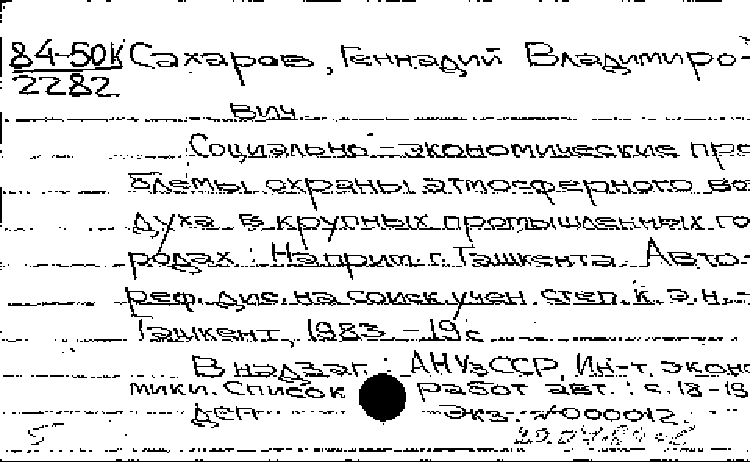 84-50К Сахаров, Геннадий Владимиро-
2282
вич
Социально-экономические про
блемы охраны атмосферного воз
духа в крупных промышленных го
родах: На прим. г. Ташкента. Авто-
реф. дис. на соиск. учен. степ. к. э. н. -
Ташкент, 1983. - 19 с
В надзаг.: АН УзССР, Ин-т. эконо
мики. Список работ авт.: с. 18-19
ДСП Экз. №000012.
5